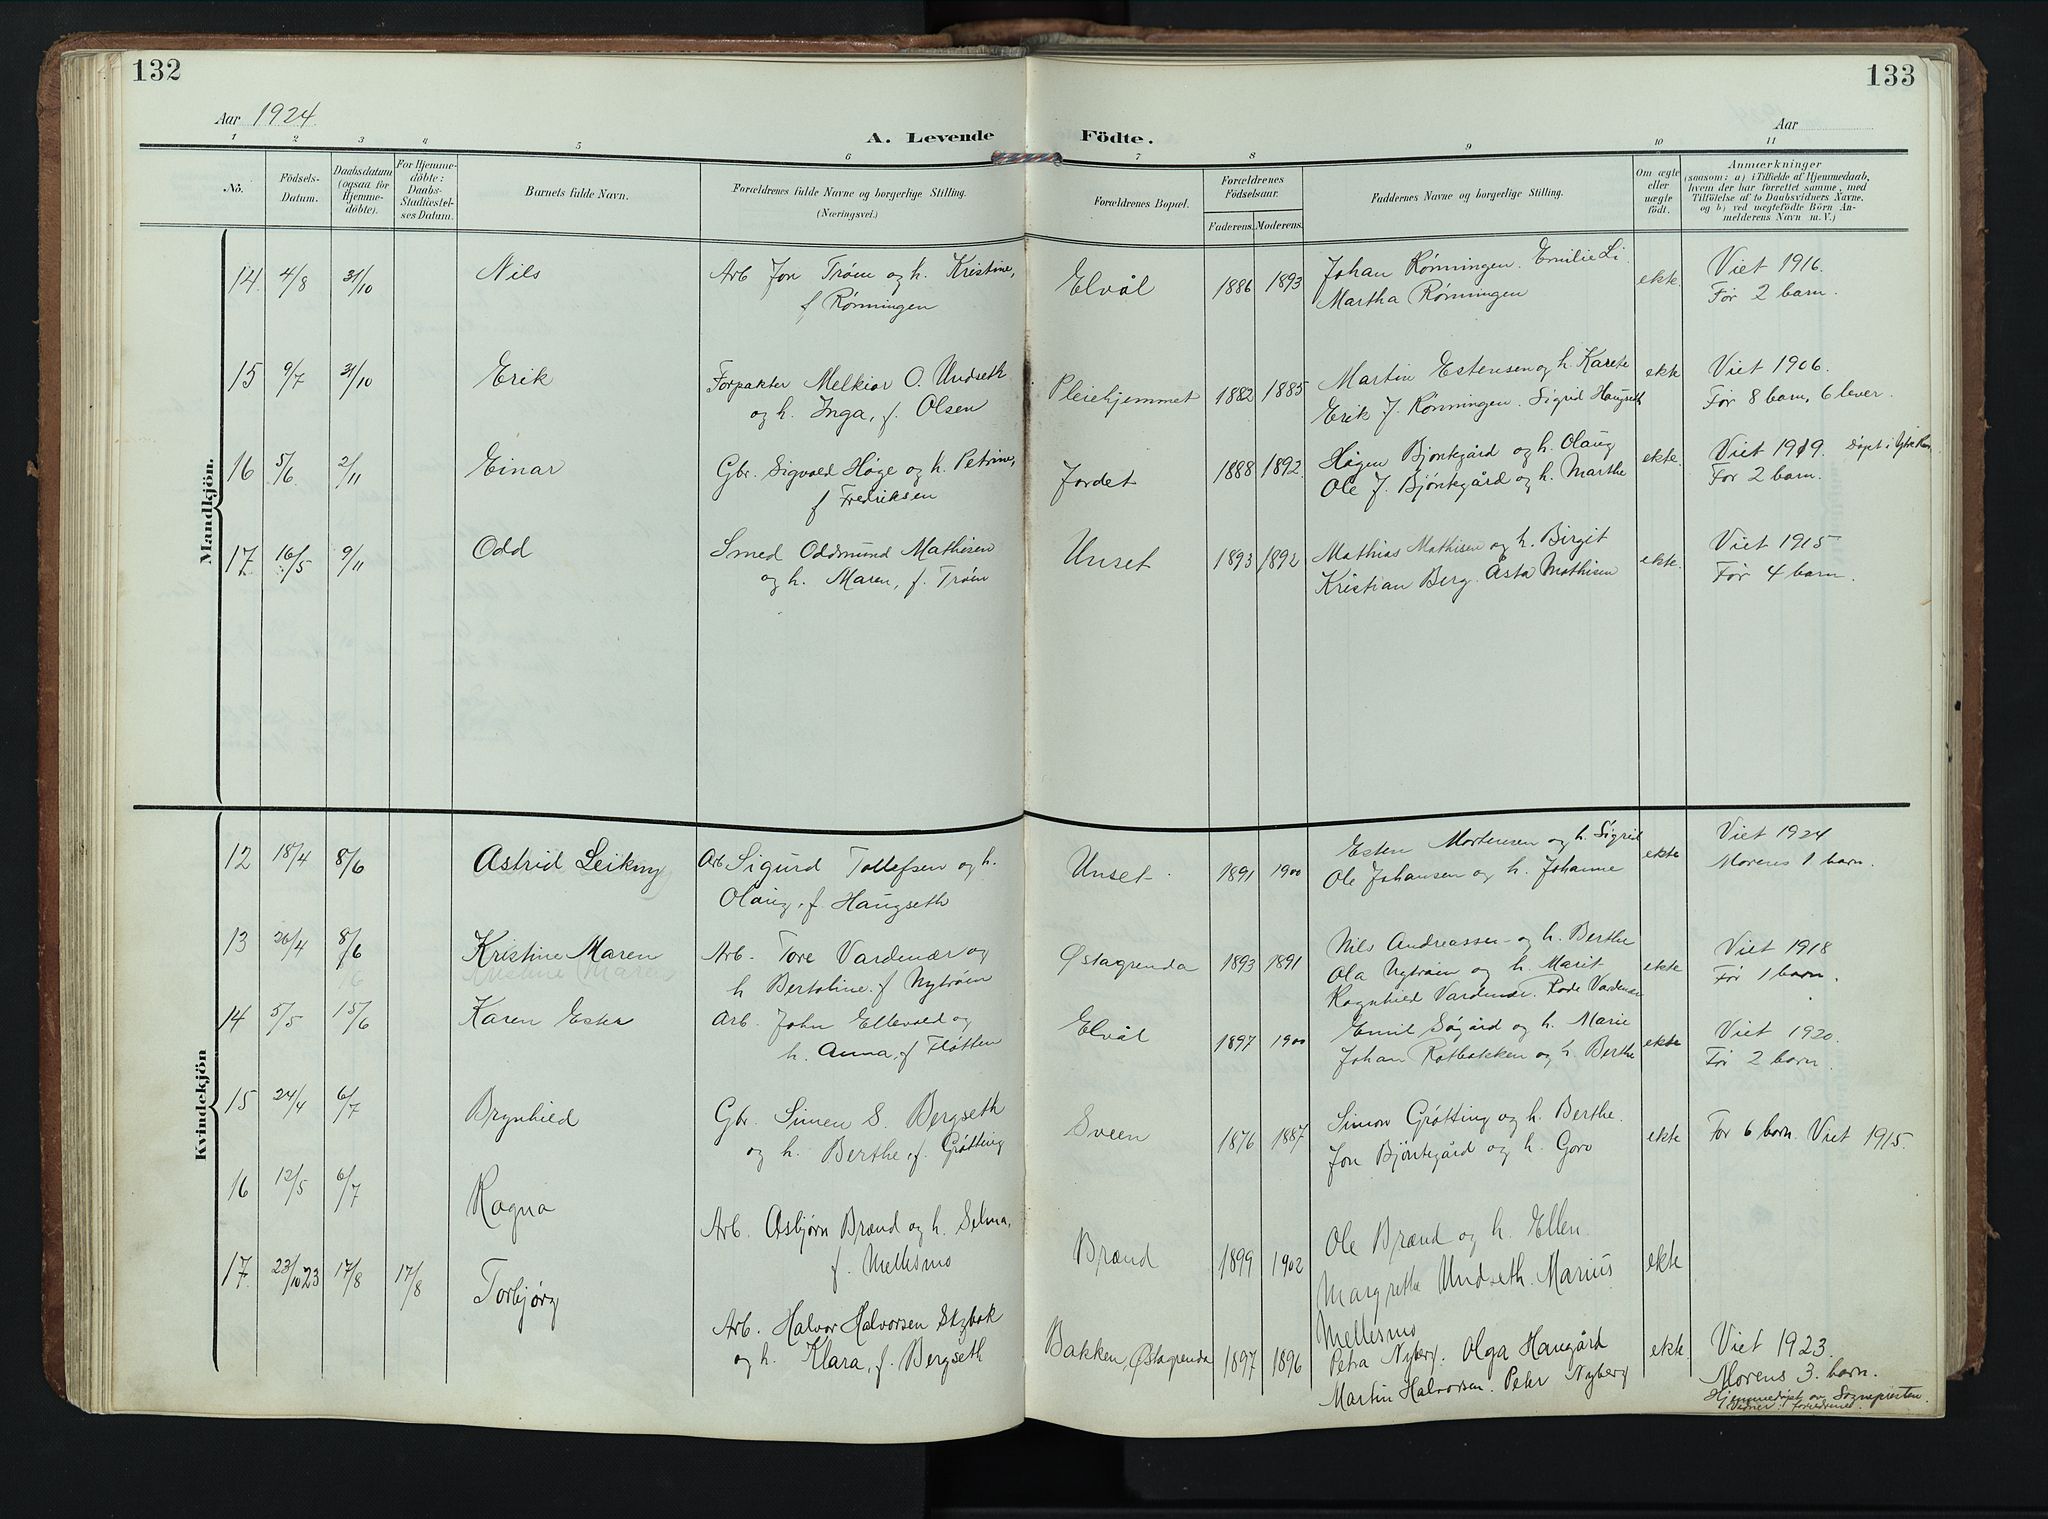 132
133
Aar 1924
Aar
A. Levende Födte.
1 2 3 4 5 6 7 8 9 10 11
No.
Födsels-Datum.
Daabsdatum (ogsaa for Hjemme-döbte).
For Hjemme-döbte: Daabs-Stadfæstel-ses Datum.
Barnets fulde Navn.
Forældrenes fulde Navne og borgerlige Stilling. (Næringsvei.)
Forældrenes Bopæl.
Forældrenes Födselsaar.
Faderens. Moderens.
Faddernes Navne og borgerlige Stilling.
Om ægte eller uægte födt.
Anmærkninger
(saasom: a) i Tilfælde af Hjemmedaab, hvem der har forrettet samme, med Tilföielse af to Daabsvidners Navne, og b) ved uægtefödte Börn An-melderens Navn m. V.)
Mandkjön.
14 4/8 31/10 Nils Arb Jon Trøen og h. Kristine, Elvål 1886 1893 Johan Rønningen. Emilie Li. ekte. Viet 1916.
f Rønningen Martha Rønningen Før 2 barn.
15 9/7 31/10 Erik Forpakter Melkior O. Undseth Pleiehjemmet 1882 1885 Martin Estensen og h. Karete ekte Viet 1906.
og h. Inga, f. Olsen Erik J. Rønningen. Sigrid Haugseth Før 8 barn, 6 lever.
16 5/6 2/11 Einar Gbr. Sigvald Høge og h. Petrine, Jordet 1888 1892 Høgen Bjøntegård og h. Olaug ekte. Viet 1919. Døpt i
f Fredriksen Ole J. Bjøntegård og h. Marthe Før 2 barn.
17. 16/5 9/11 Odd Smed Oddmund Mathisen Unset 1893 1892 Mathias Mathisen og h. Birgit ekte. Viet 1915
og h. Maren, f. Trøen Kristian Berg. Asta Mathisen Før 4 barn.
Kvindekjön
12 18/4 8/6 Astrid Leikny Arb. Sigurd Tollefsen og h. Unset. 1891 1900 Esten Mortensen og h. Sigrid ekte Viet 1924
Olaug, f. Haugseth Ole Johansen og h. Johanne Morens 1 barn.
13 26/4 8/6 Kristine Maren Arb. Tore Vardenær og Østagrenda 1893 1891 Nils Andreassen og h. Berthe ekte Viet 1918
h Bertoline f Nytrøen Ola Nytrøen og h. Marit Før 1 barn.
Ragnhild Vardenær. Vardenær
14 5/5 15/6 Karen Ester Arb. John Ellevold og Elvål 1897 1900 Emil Søgård og h. Marie ekte Viet 1920.
h. Anna, f Fløtten Johan Rotbakken og h Berthe Før 2 barn.
15 24/4 6/7 Brynhild Gbr. Simen S. Bergseth Sveen 1876 1887 Simon Grøtting og h. Berthe. ekte For 6 barn. Viet 1915.
og h. Berthe, f. Grøtting Jon Bjøntegård og h. Goro
16 12/5 6/7 Ragna Arb. Asbjørn Brænd og h. Selma, Brænd 1899 1902 Ole Brænd og h. Ellen. ekte
f. Mellesmo Margrethe Undseth. Marius
Mellesmo
17. 23/10 23 17/8 17/8 Torbjørg Arb. Halvor Halvorsen Stubak Bakken, Østagrenda 1897 1896 Petra Nyberg. Olga Haugård ekte. Viet 1923.
og h. Klara, f. Bergseth Martin Halvorsen. Peter Nyberg Morens 3. barn.
Hjemmedøpt av Sogneprесten.
Vidner: foreldrene.